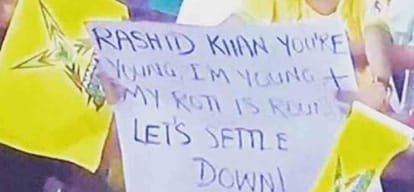 RASHID KHAN YOU'RE
YOUNG, I'M YOUNG +
MY ROTI IS ROUND
LET'S SETTLE
DOWN!